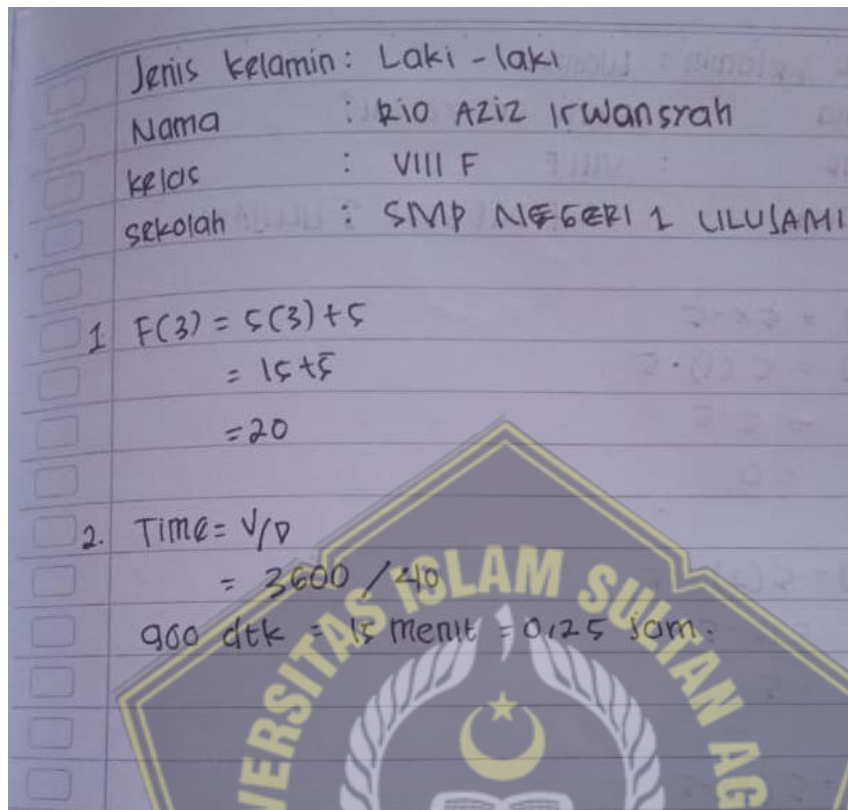 Jenis kelamin : Laki - laki
Nama : Rio Aziz Irwansyah
kelas : VIII F
sekolah : SMP NEGERI 1 ULUJAMI
1 F(3) = 5(3)+5
= 15+5
=20
2. Time= V/D
= 3600 / 40
900 dtk = 15 menit = 0,25 jam.
ISLAM SULTAN AG